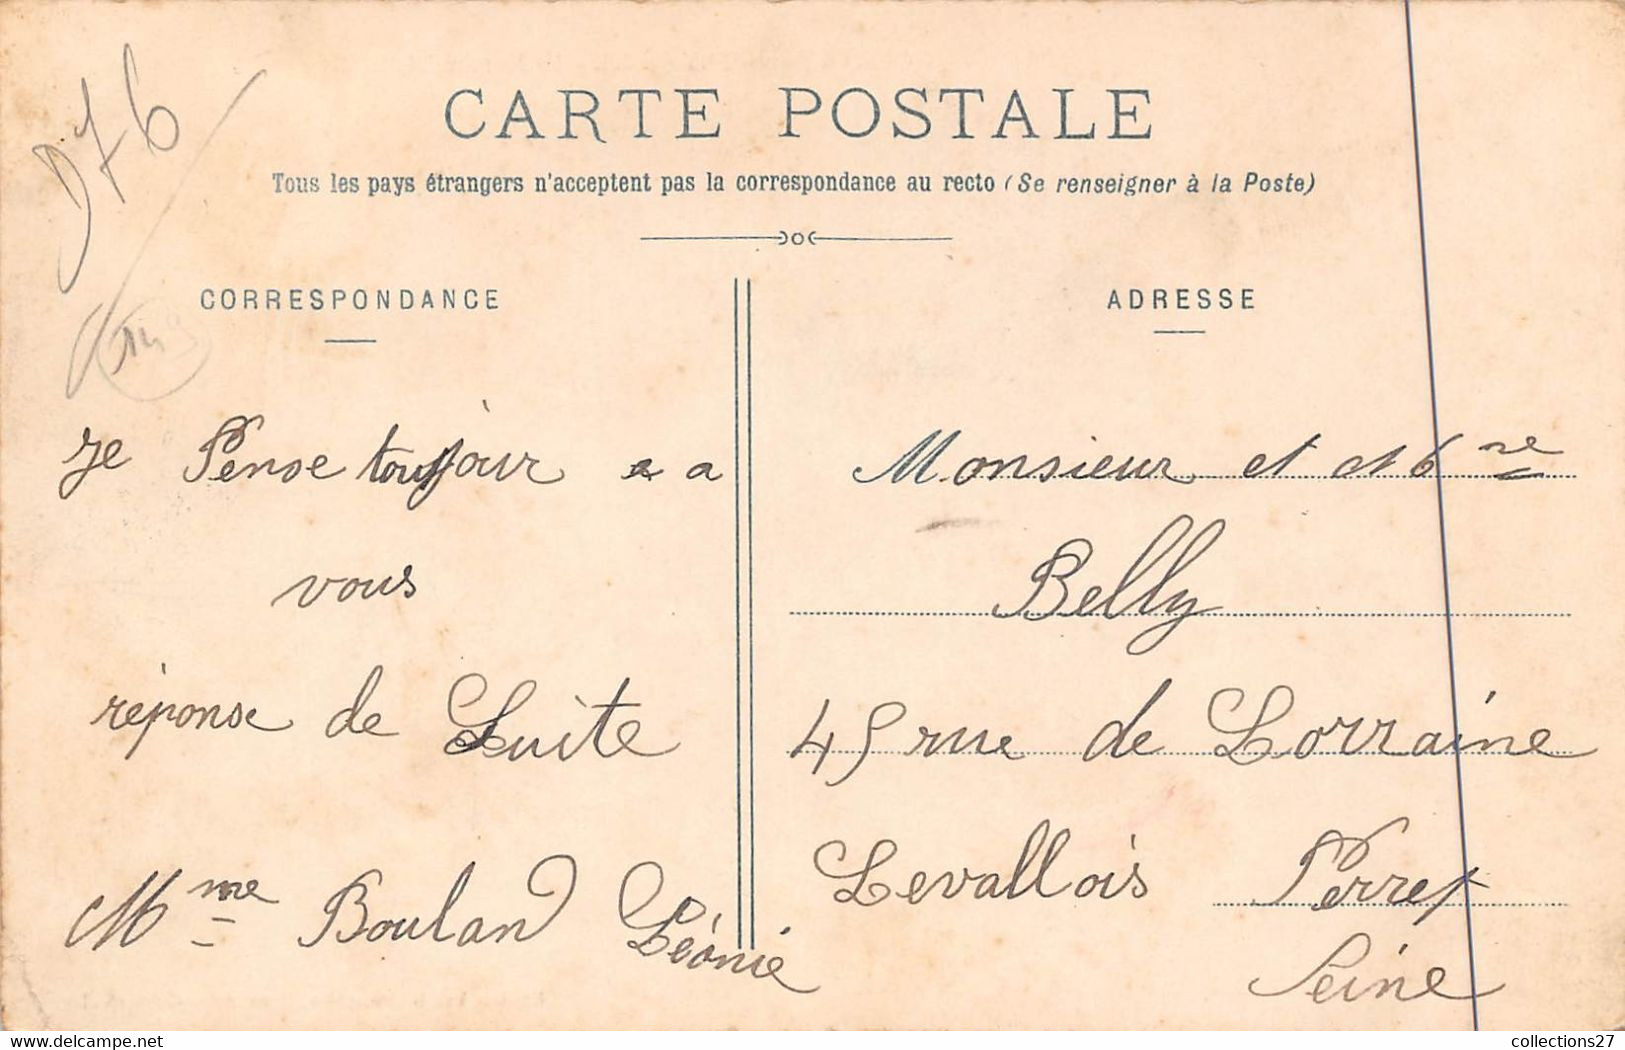 D76
CARTE POSTALE
Tous les pays étrangers n'acceptent pas la correspondance au recto (Se renseigner à la Poste)
CORRESPONDANCE
ADRESSE
Je Pense toujour a a
vous
réponse de Suite
Mme Bouland Léonie
Monsieur et
Belly
45 rue de Lorraine
Levallois Perret
Seine
www.delcampe.net
collections27